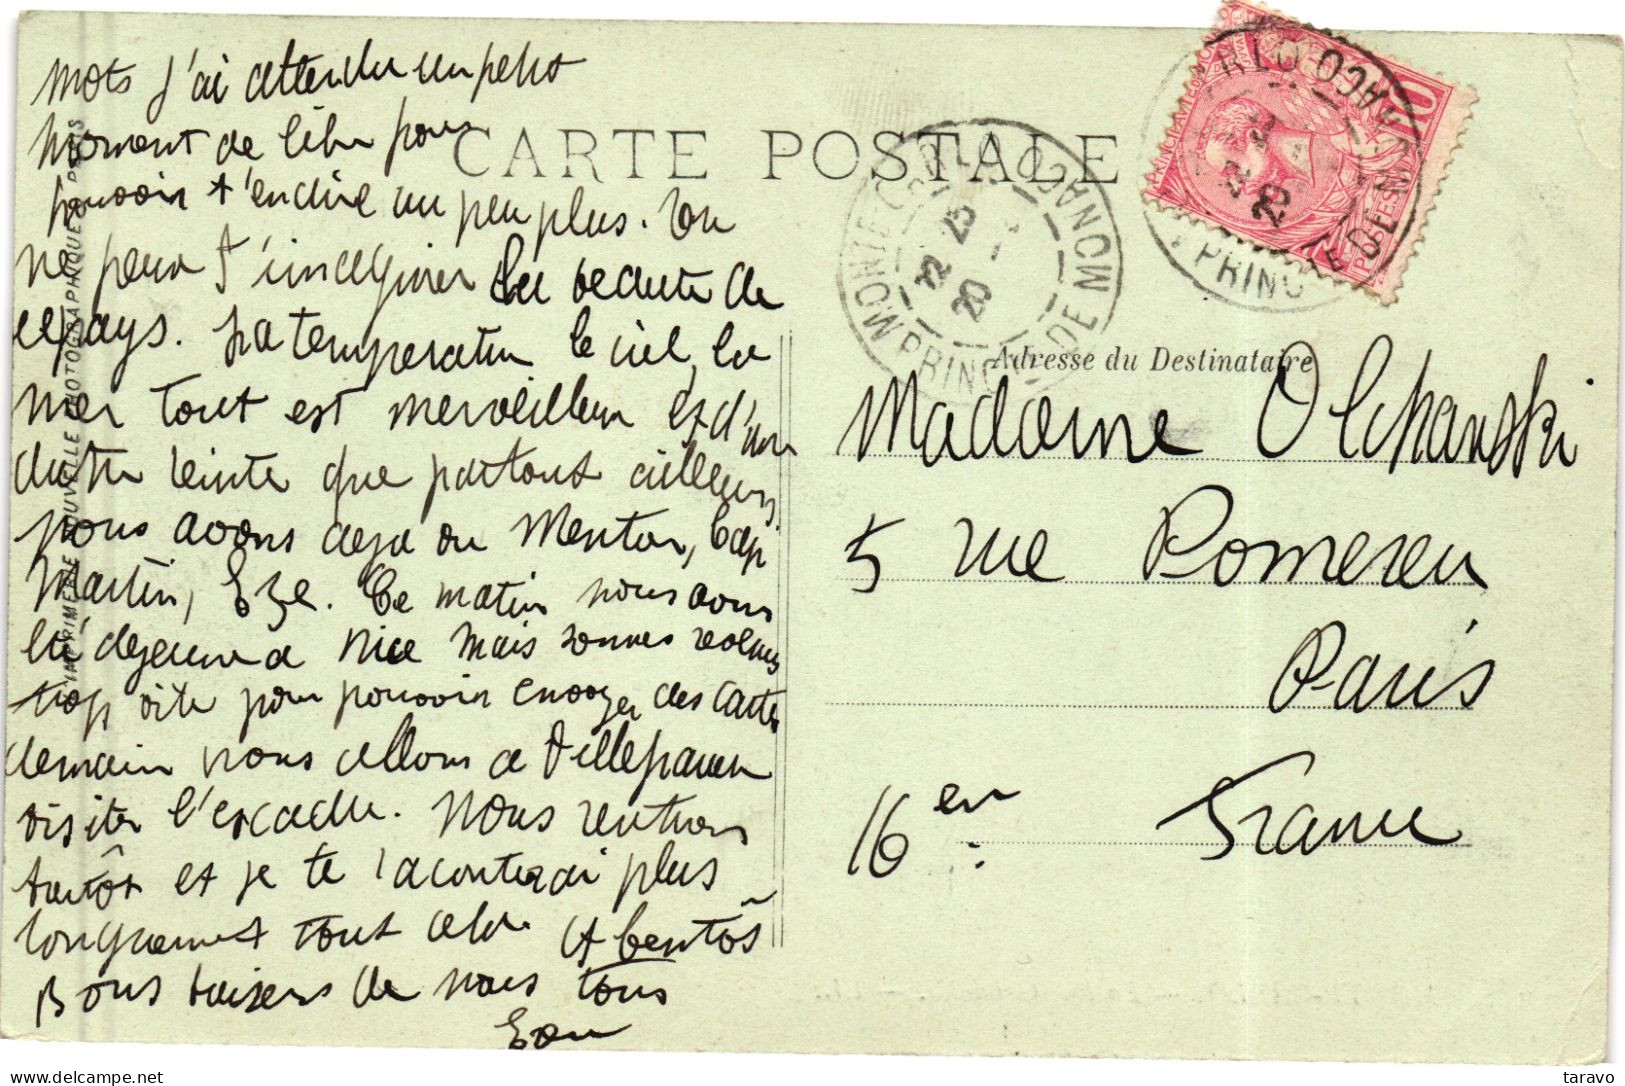 mots j'ai attendu un petit
moment de libre pour
pouvoir t'endire un peu plus. Tu
ne peux t'imaginer la beauté de
ce pays. La temperature le ciel, la
mer tout est merveilleux et d'une
autre teinte que partout ailleurs
nous avons deja vu Menton, Cap
Martin, Eze. Ce matin nous avons
été dejeuner a Nice mais sommes revenus
trop vite pour pouvoir envoyer des cartes
demain nous allons a Villefranche
visiter l'escadre. Nous rentrons
bientôt et je te raconterai plus
longuement tout cela. A bientôt
Bons baisers de nous tous
CARTE POSTALE
MONTE CARLO
PRINCIPAUTÉ DE MONACO
12 25
20
RLO
PRINCIPAUTÉ DE MONACO
20
10
POSTES
Adresse du Destinataire
Madame Olchanski
5 rue Pomereu
Paris
16 er France
IMPRIMERIE NOUVELLE PHOTOGRAPHIQUE
taravo